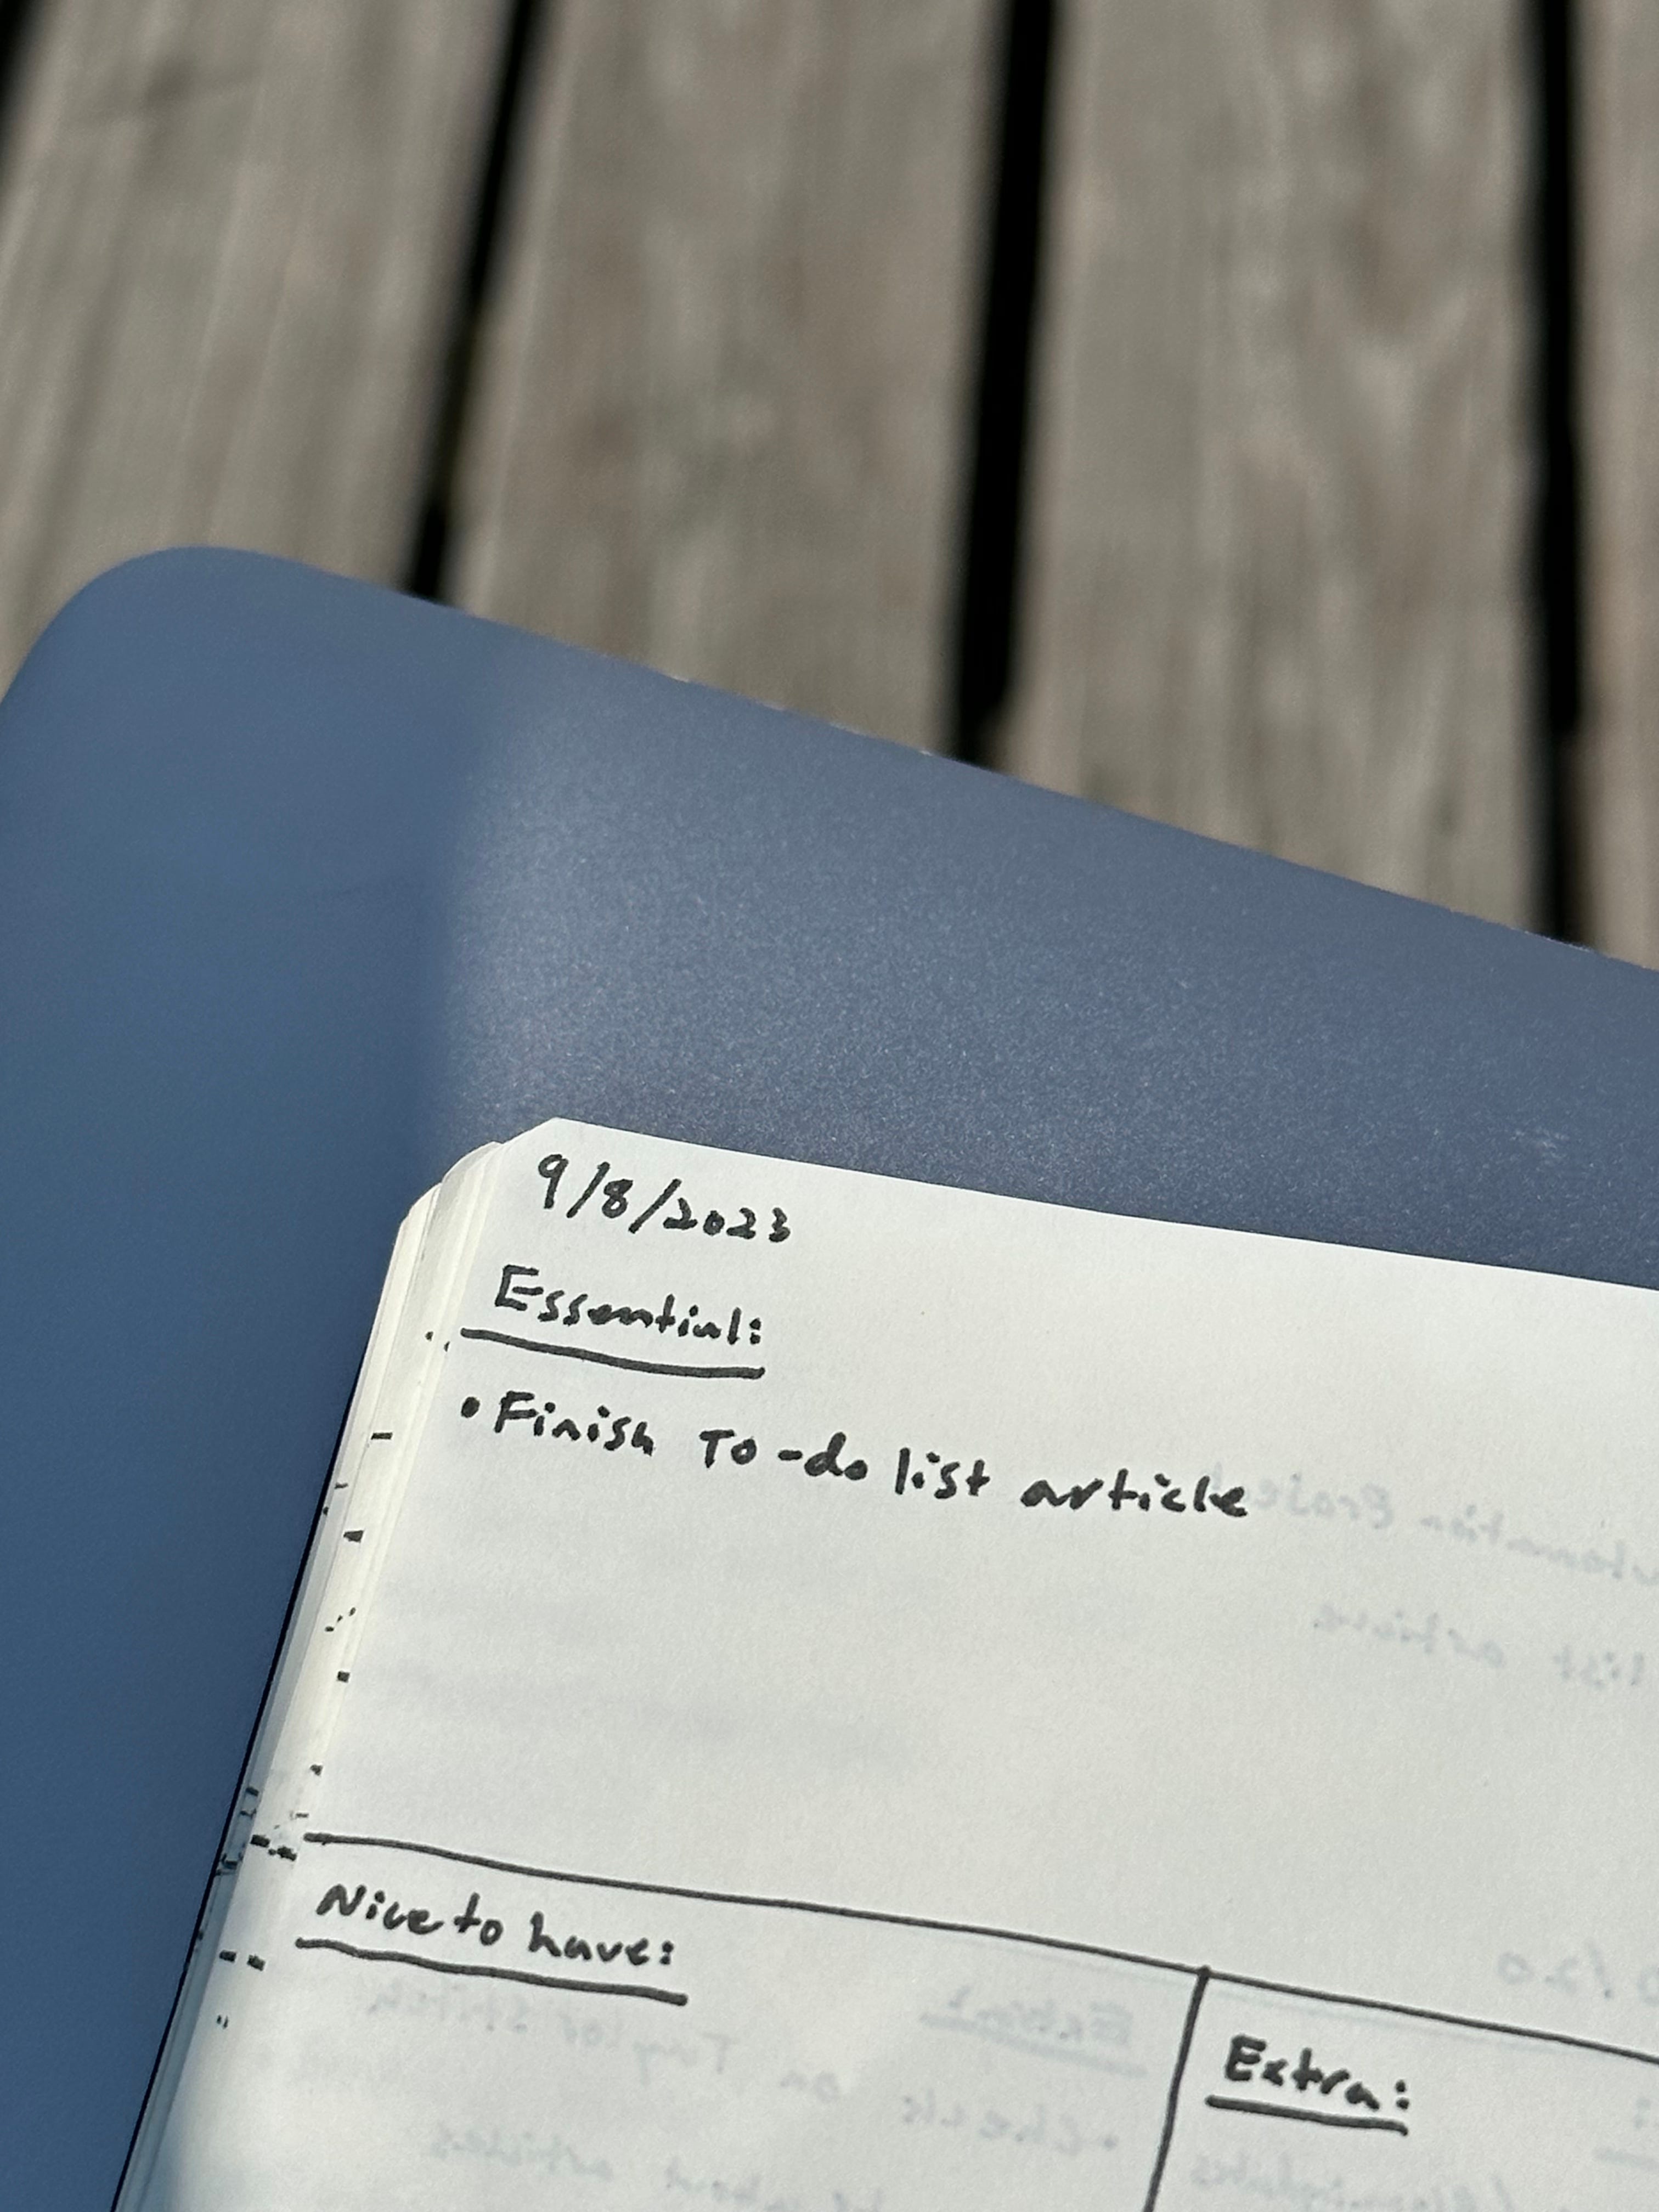 9/8/2023
Essential:
• Finish To-do list article
Nice to have:
Extra: